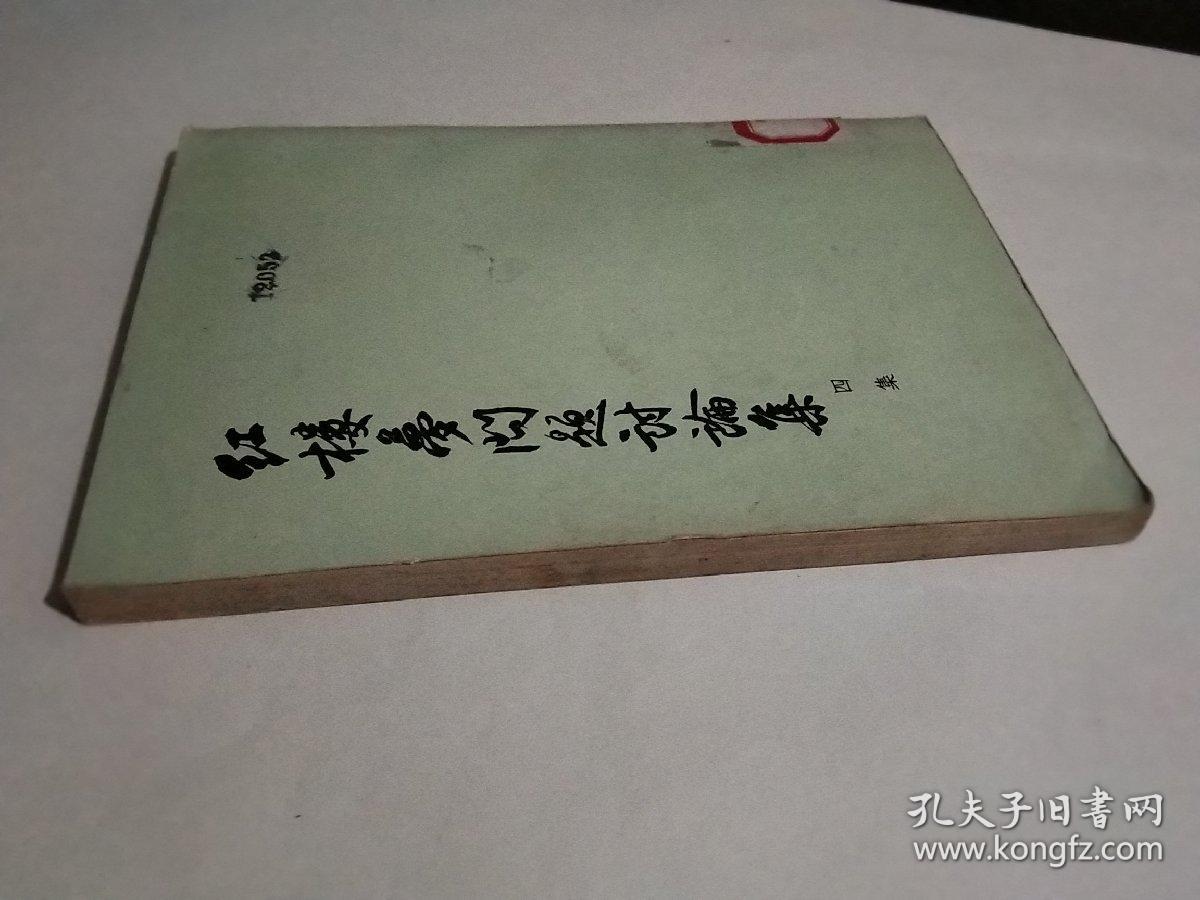 12052
红楼夢问题讨論集
四集
孔夫子旧书网
www.kongfz.com